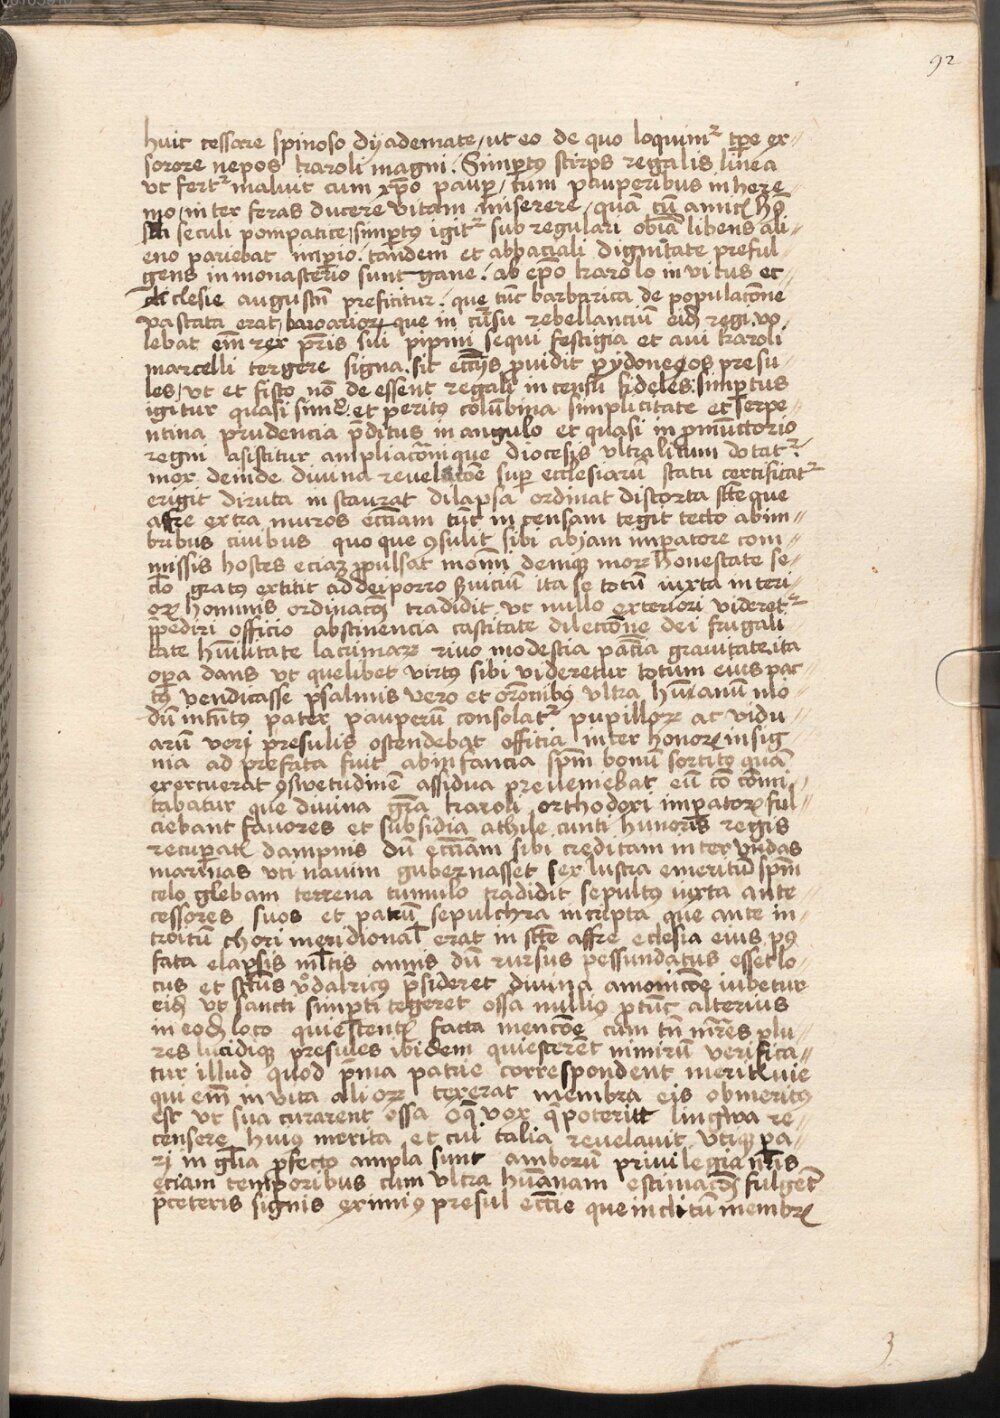 92
huic cessare spinoso dyademate, ut eo de quo loquimr tpe ex
sorore nepos karoli magni. Simptus stirps regalis linea
ut fertr maluit cum xpo paup, cum pauperibus in here
mo, inter feras ducere vitam miserere, quā cū amicꝭ
seculi pompatice, simptus igitr sub regulari obiā libens ali
eno pariebat inpio. tandem et abbaciali dignitate preful
gens in monasterio sunt gane. ab epo karolo invitus et
ecclesie augustn preficitur. que tūc barbarica de populacōne
vastata erat bawarioꝝ que in cursu rebellanciū eidē regi. vo
lebat em̄ rex pris sui pipini sequi festigia et avi karoli
marcelli tergere signa. sic ecciis pvidit ydoneos presu
les, ut et fisco nō de essent regali in censu fideles. simptus
igitur quasi et peritꝰ columbina simplicitate et serpe
ntina prudencia pditus in angulo et quasi in pmūctorio
regni asistitur ampliacōnique diocesis ultra litum dotatr.
mox deinde divina revelacōe sup ecclesiarū statu certificatr
erigit diruta instaurat dilapsa ordinat distorta scte que
affre extra muros ecciam tūc incensam tegit tecto ab im
bribus civibus quoque ꝯsulit sibi ab jam impatore com
missis hostes eciaꝫ ppulsat denique moꝝ honestate se
clo gratꝰ extitit ad dei porro ẜviciū ita se totū iuxta interi
oꝝ hominis ordinacōꝫ tradidit, ut nullo exteriori videretr
ppediri officio abstinencia castitate dilectione dei frugali
tate humilitate lacrimaꝝ rivo modestia paciā gravitate, ita
opa dans ut quelibet virtꝰ sibi videretur totum eius pac
tꝰ vendicasse psalmis vero et oronibꝰ ultra humanū mo
dū intentꝰ pater pauperū consolatr pupilloꝝ ac vidu
arū veri presulis ostendebat officia inter honoꝝ insig
nia ad prefata fuit ab infancia spm bonū sortitꝰ quā
exercuerat ꝯswetudinē assidua preveniebat eū comi
tabatur que divina gra karoli orthodoxi impatoꝝ ful
ciebant favores et subsidia athile cunti hunoris regis
recupatꝭ dampnis dū ecciam sibi creditam inter undas
marinas uti navim gubernasset sex lustra emeritū spm
celo glebam terrena tumulo tradidit sepultꝰ iuxta ante
cessores suos et patrū sepulchra in cripta que ante in
troitū chori meridional erat in scte affre eclesia eius pꝰ
fata elapsis multis annis dū rursus pessundatus esset lo
cus et sctus vodalricꝰ psideret divina amonicōe iubetur
eidē ut sancti simpti tegeret ossa nulliꝰ ptūc alterius
in eodē loco quiescentꝭ facta mencōe cum tn mres plu
res lucidiqꝫ presules ibidem quiescerēt nimirū verifica
tur illud quod pmia patrie correspondent meritꝭ vie
qui em̄ in vita alioꝝ texerat membra eis obmeritꝰ
est ut sua curarent ossa vox poteritt lingwa re
censere huiꝰ merita et cui talia revelavit utiqꝫ pa
ri in glia pfecto ampla sunt amborū privilegia nris
eciam temporibus cum ultra humanam estimacōꝫ fulgeret
pceteris signis eximiꝰ presul eccie que inclitū membꝝ
3